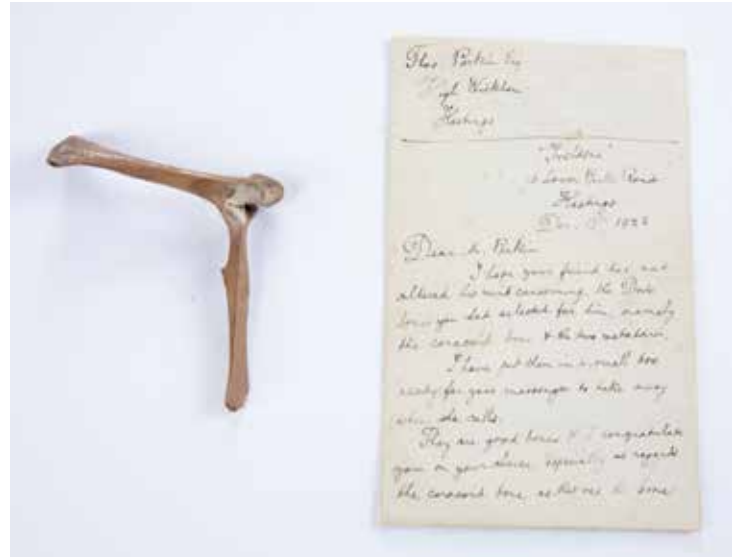 Thos Parkin Esq
High Wickham
Hastings
Lower Park Road
Hastings
Dec. 1923
Dear Mr Parkin
I hope your friend has not
altered his mind concerning the Dodo
bones you had selected for him, namely
the coracoid bone & the two metatarsi.
I have put them in a small box
ready for your messenger to take away
when she calls.
They are good bones & I congratulate
you on your choice especially as regards
the coracoid bone as that one is some